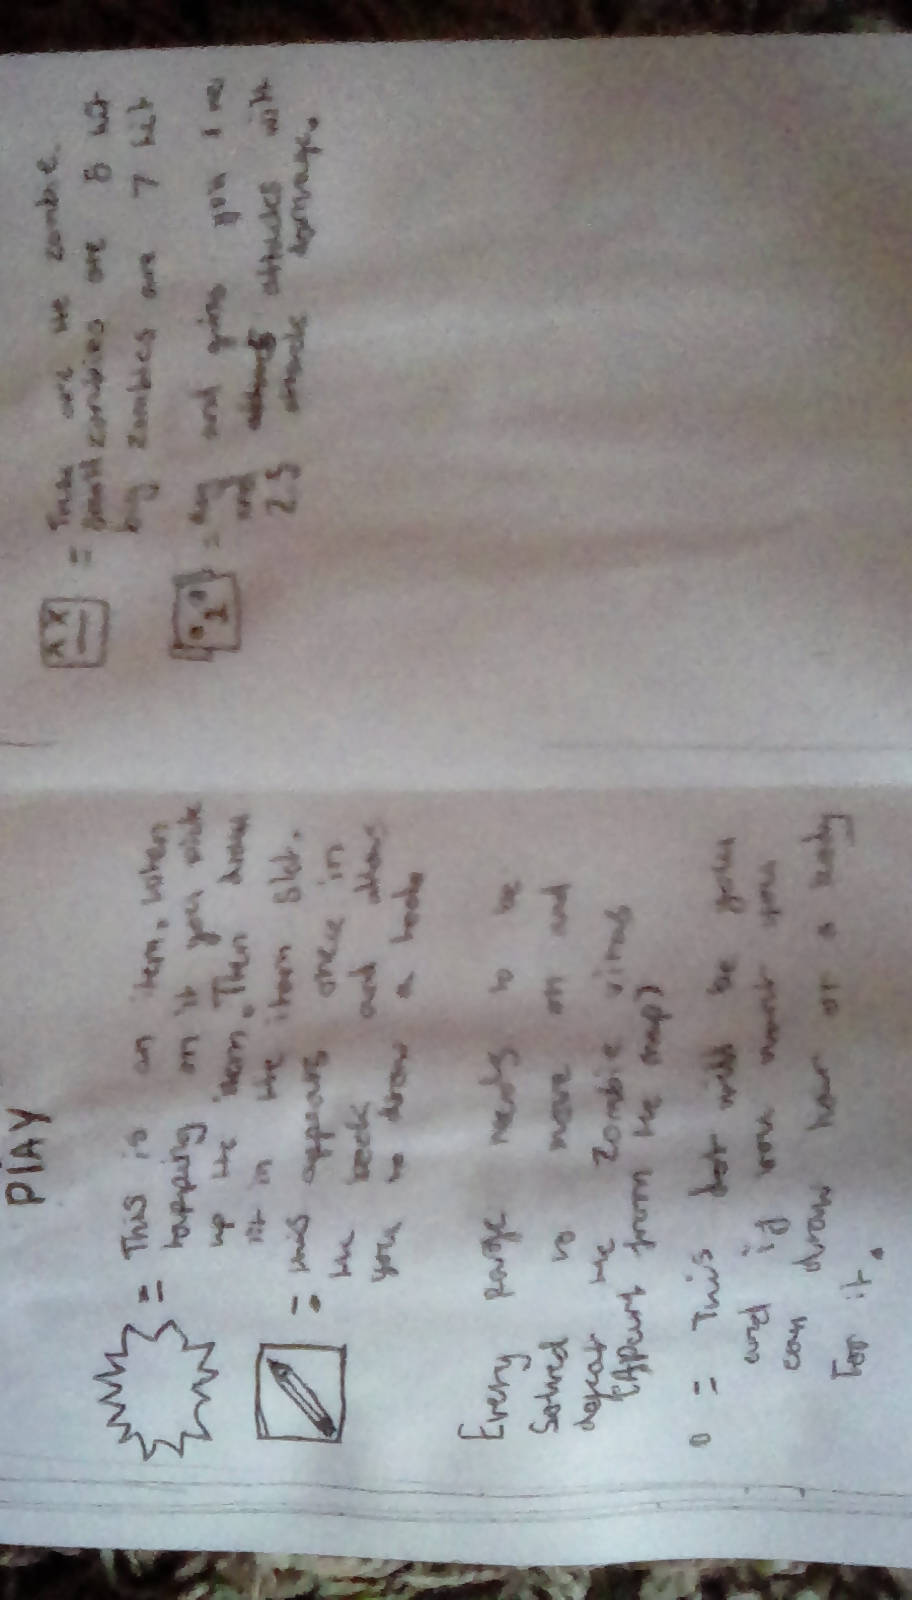 PlAY
= This is an item, when
tapping on it you pick
up the item. Then draw
it in the item slot.
= this appears once in
the book and allows
you to draw a
Every page needs to be
Solved to move on and
defeat the Zombie virus
(Apart from the map)
= This dot will be you
and if you want you
can draw hair or a body
For it.
= These are the zombie.
small zombies are 5 hit
big zombies are 7 hit
= and gives you 1
and attacks with
2.5 attack damage.